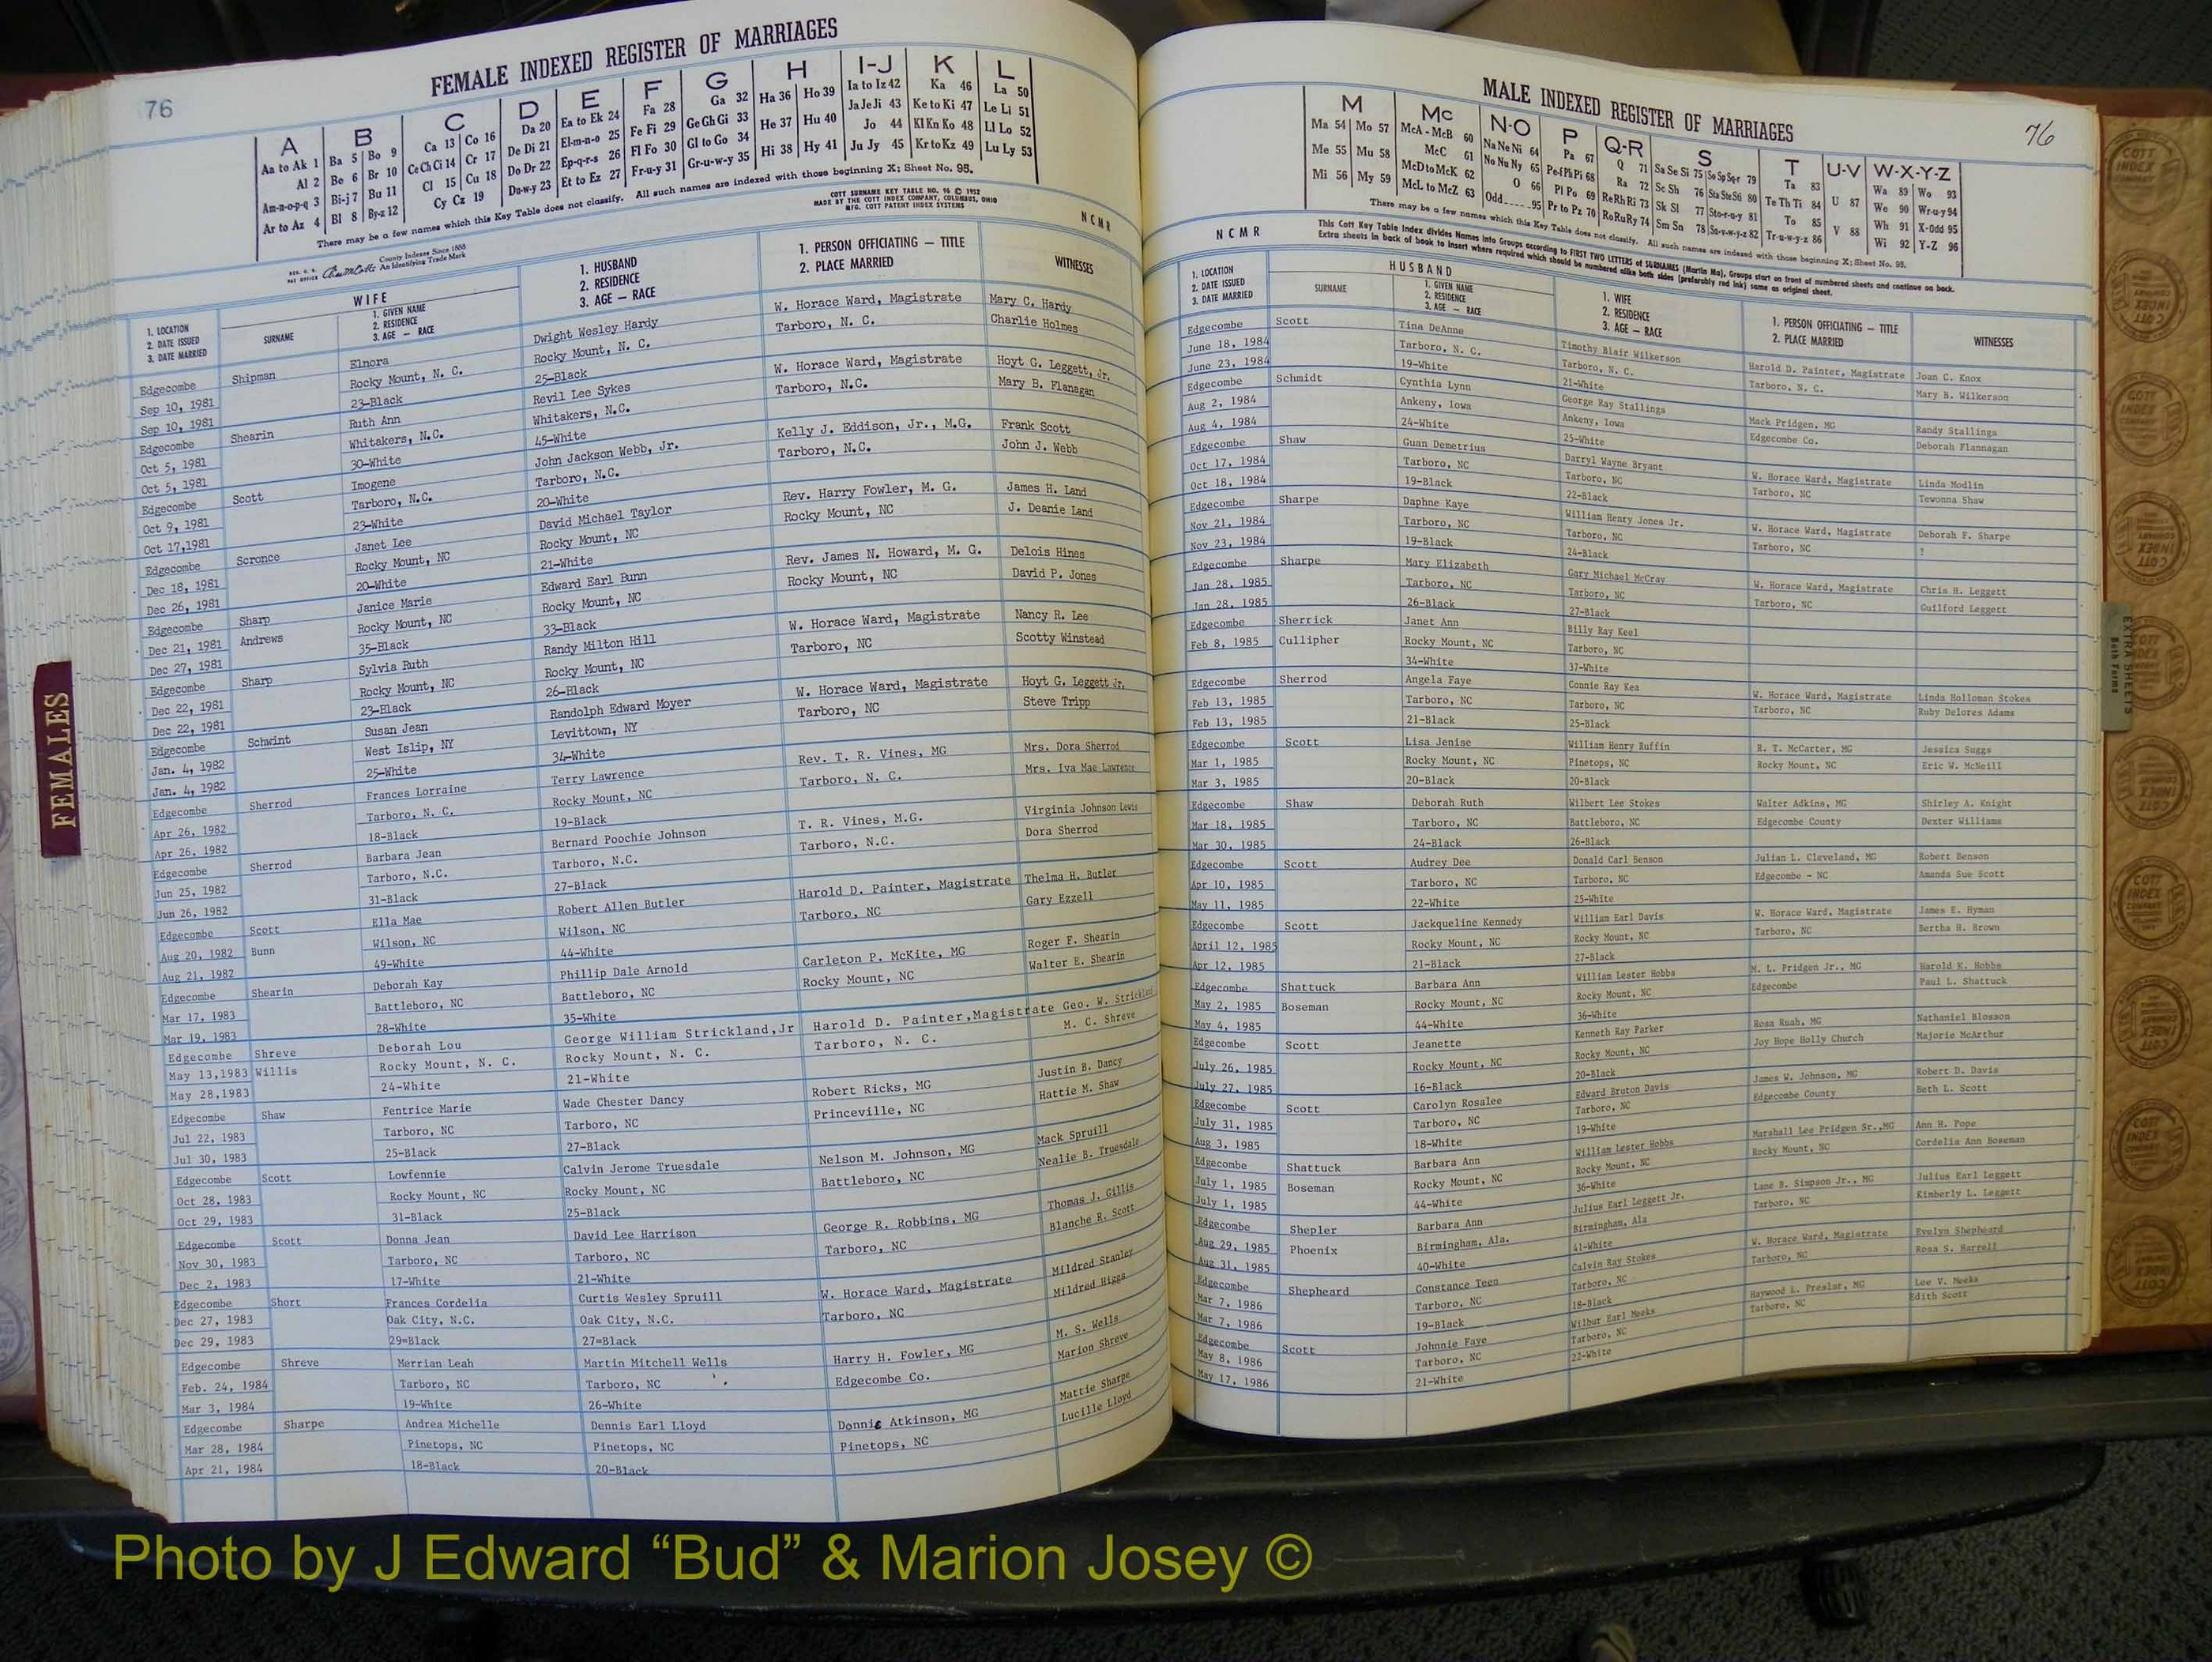 76
FEMALE INDEXED REGISTER OF MARRIAGES
A B C D E F G H I-J K L
Aa to Ak 1 Ba 5 Bo 9 Ca 13 Co 16 Da 20 Ea to Ek 24 Fa 28 Ga 32 Ha 36 Ho 39 Ia to Iz 42 Ka 46 La 50
Al 2 Be 6 Br 10 Ce Ch Ci 14 Cr 17 De Di 21 El-m-n-o 25 Fe Fi 29 Ge Gh Gi 33 He 37 Hu 40 Ja Je Ji 43 Ke to Ki 47 Le Li 51
Am-n-o-p-q 3 Bi-j 7 Bu 11 Cl 15 Cu 18 Do Dr 22 Ep-q-r-s 26 Fl Fo 30 Gl to Go 34 Hi 38 Hy 41 Jo 44 Kl Kn Ko 48 Ll Lo 52
Ar to Az 4 Bl 8 By-z 12 Cy Cz 19 Du-w-y 23 Et to Ez 27 Fr-u-y 31 Gr-u-w-y 35 Ju Jy 45 Kr to Kz 49 Lu Ly 53
There may be a few names which this Key Table does not classify. All such names are indexed with those beginning X; Sheet No. 95.
County Indexes Since 1888
An Identifying Trade Mark
COTT SURNAME KEY TABLE NO. 96 © 1952
MADE BY THE COTT INDEX COMPANY, COLUMBUS, OHIO
MFG. COTT PATENT INDEX SYSTEMS
NCMR
1. LOCATION
2. DATE ISSUED
3. DATE MARRIED
WIFE
SURNAME
1. GIVEN NAME
2. RESIDENCE
3. AGE — RACE
1. HUSBAND
2. RESIDENCE
3. AGE — RACE
1. PERSON OFFICIATING — TITLE
2. PLACE MARRIED
WITNESSES
Edgecombe Shipman Elnora Dwight Wesley Hardy W. Horace Ward, Magistrate Mary C. Hardy
Sep 10, 1981 Rocky Mount, N. C. Rocky Mount, N. C. Tarboro, N. C. Charlie Holmes
Sep 10, 1981 23-Black 25-Black
Edgecombe Shearin Ruth Ann Revil Lee Sykes W. Horace Ward, Magistrate Hoyt G. Leggett, Jr.
Oct 5, 1981 Whitakers, N.C. Whitakers, N.C. Tarboro, N.C. Mary B. Flanagan
Oct 5, 1981 30-White 45-White
Edgecombe Scott Imogene John Jackson Webb, Jr. Kelly J. Eddison, Jr., M.G. Frank Scott
Oct 9, 1981 Tarboro, N.C. Tarboro, N.C. Tarboro, N.C. John J. Webb
Oct 17,1981 23-White 20-White
Edgecombe Scronce Janet Lee David Michael Taylor Rev. Harry Fowler, M. G. James H. Land
Dec 18, 1981 Rocky Mount, NC Rocky Mount, NC Rocky Mount, NC J. Deanie Land
Dec 26, 1981 20-White 21-White
Edgecombe Sharp Janice Marie Edward Earl Bunn Rev. James N. Howard, M. G. Delois Hines
Dec 21, 1981 Andrews Rocky Mount, NC Rocky Mount, NC Rocky Mount, NC David P. Jones
Dec 27, 1981 35-Black 33-Black
Edgecombe Sharp Sylvia Ruth Randy Milton Hill W. Horace Ward, Magistrate Nancy R. Lee
Dec 22, 1981 Rocky Mount, NC Rocky Mount, NC Tarboro, NC Scotty Winstead
Dec 22, 1981 23-Black 26-Black
Edgecombe Schwint Susan Jean Randolph Edward Moyer W. Horace Ward, Magistrate Hoyt G. Leggett Jr.
Jan. 4, 1982 West Islip, NY Levittown, NY Tarboro, NC Steve Tripp
Jan. 4, 1982 25-White 34-White
Edgecombe Sherrod Frances Lorraine Terry Lawrence Rev. T. R. Vines, MG Mrs. Dora Sherrod
Apr 26, 1982 Tarboro, N. C. Rocky Mount, NC Tarboro, N. C. Mrs. Iva Mae Lawrence
Apr 26, 1982 18-Black 19-Black
Edgecombe Sherrod Barbara Jean Bernard Poochie Johnson T. R. Vines, M.G. Virginia Johnson Lewis
Jun 25, 1982 Tarboro, N.C. Tarboro, N.C. Tarboro, N.C. Dora Sherrod
Jun 26, 1982 31-Black 27-Black
Edgecombe Scott Ella Mae Robert Allen Butler Harold D. Painter, Magistrate Thelma H. Butler
Aug 20, 1982 Bunn Wilson, NC Wilson, NC Tarboro, NC Gary Ezzell
Aug 21, 1982 49-White 44-White
Edgecombe Shearin Deborah Kay Phillip Dale Arnold Carleton P. McKite, MG Roger F. Shearin
Mar 17, 1983 Battleboro, NC Battleboro, NC Rocky Mount, NC Walter E. Shearin
Mar 19, 1983 28-White 35-White
Edgecombe Shreve Deborah Lou George William Strickland,Jr Harold D. Painter,Magistrate Geo. W. Strickland
May 13,1983 Willis Rocky Mount, N. C. Rocky Mount, N. C. Tarboro, N. C. M. C. Shreve
May 28,1983 24-White 21-White
Edgecombe Shaw Fentrice Marie Wade Chester Dancy Robert Ricks, MG Justin B. Dancy
Jul 22, 1983 Tarboro, NC Tarboro, NC Princeville, NC Hattie M. Shaw
Jul 30, 1983 25-Black 27-Black
Edgecombe Scott Lowfennie Calvin Jerome Truesdale Nelson M. Johnson, MG Mack Spruill
Oct 28, 1983 Rocky Mount, NC Rocky Mount, NC Battleboro, NC Nealie B. Truesdale
Oct 29, 1983 31-Black 25-Black
Edgecombe Scott Donna Jean David Lee Harrison George R. Robbins, MG Thomas J. Gillis
Nov 30, 1983 Tarboro, NC Tarboro, NC Tarboro, NC Blanche R. Scott
Dec 2, 1983 17-White 21-White
Edgecombe Short Frances Cordelia Curtis Wesley Spruill W. Horace Ward, Magistrate Mildred Stanley
Dec 27, 1983 Oak City, N.C. Oak City, N.C. Tarboro, NC Mildred Higgs
Dec 29, 1983 29=Black 27=Black
Edgecombe Shreve Merrian Leah Martin Mitchell Wells Harry H. Fowler, MG M. S. Wells
Feb. 24, 1984 Tarboro, NC Tarboro, NC Edgecombe Co. Marion Shreve
Mar 3, 1984 19-White 26-White
Edgecombe Sharpe Andrea Michelle Dennis Earl Lloyd Donnie Atkinson, MG Mattie Sharpe
Mar 28, 1984 Pinetops, NC Pinetops, NC Pinetops, NC Lucille Lloyd
Apr 21, 1984 18-Black 20-Black
FEMALES
MALE INDEXED REGISTER OF MARRIAGES
76
M Mc N-O P Q-R S T U-V W-X-Y-Z
Ma 54 Mo 57 McA - McB 60 Na Ne Ni 64 Pa 67 Q 71 Sa Se Si 75 So Sp Sq-r 79 Ta 83 U 87 Wa 89 Wo 93
Me 55 Mu 58 McC 61 No Nu Ny 65 Pe-f Ph Pi 68 Ra 72 Sc Sh 76 Sta Ste Sti 80 Te Th Ti 84 V 88 We 90 Wr-u-y 94
Mi 56 My 59 McD to McK 62 O 66 Pl Po 69 Re Rh Ri 73 Sk Sl 77 Sto-r-u-y 81 To 85 Wh 91 X-Odd 95
McL to McZ 63 Odd.....95 Pr to Pz 70 Ro Ru Ry 74 Sm Sn 78 Su-v-w-y-z 82 Tr-u-w-y-z 86 Wi 92 Y-Z 96
There may be a few names which this Key Table does not classify. All such names are indexed with those beginning X; Sheet No. 95.
This Cott Key Table Index divides Names into Groups according to FIRST TWO LETTERS of SURNAMES (Martin Ma), Groups start on front of numbered sheets and continue on back.
Extra sheets in back of book to insert where required which should be numbered alike both sides (preferably red ink) same as original sheet.
NCMR
1. LOCATION
2. DATE ISSUED
3. DATE MARRIED
HUSBAND
SURNAME
1. GIVEN NAME
2. RESIDENCE
3. AGE — RACE
1. WIFE
2. RESIDENCE
3. AGE — RACE
1. PERSON OFFICIATING — TITLE
2. PLACE MARRIED
WITNESSES
Edgecombe Scott Tina DeAnne Timothy Blair Wilkerson Harold D. Painter, Magistrate Joan C. Knox
June 18, 1984 Tarboro, N. C. Tarboro, N. C. Tarboro, N. C. Mary B. Wilkerson
June 23, 1984 19-White 21-White
Edgecombe Schmidt Cynthia Lynn George Ray Stallings Mack Pridgen, MG Randy Stallings
Aug 2, 1984 Ankeny, Iowa Ankeny, Iowa Edgecombe Co. Deborah Flannagan
Aug 4, 1984 24-White 25-White
Edgecombe Shaw Guan Demetrius Darryl Wayne Bryant W. Horace Ward, Magistrate Linda Modlin
Oct 17, 1984 Tarboro, NC Tarboro, NC Tarboro, NC Tewonna Shaw
Oct 18, 1984 19-Black 22-Black
Edgecombe Sharpe Daphne Kaye William Henry Jones Jr. W. Horace Ward, Magistrate Deborah F. Sharpe
Nov 21, 1984 Tarboro, NC Tarboro, NC Tarboro, NC ?
Nov 23, 1984 19-Black 24-Black
Edgecombe Sharpe Mary Elizabeth Gary Michael McCray W. Horace Ward, Magistrate Chris H. Leggett
Jan 28, 1985 Tarboro, NC Tarboro, NC Tarboro, NC Guilford Leggett
Jan 28, 1985 26-Black 27-Black
Edgecombe Sherrick Janet Ann Billy Ray Keel
Feb 8, 1985 Cullipher Rocky Mount, NC Tarboro, NC
34-White 37-White
Edgecombe Sherrod Angela Faye Connie Ray Kea W. Horace Ward, Magistrate Linda Holloman Stokes
Feb 13, 1985 Tarboro, NC Tarboro, NC Tarboro, NC Ruby Delores Adams
Feb 13, 1985 21-Black 25-Black
Edgecombe Scott Lisa Jenise William Henry Ruffin R. T. McCarter, MG Jessica Suggs
Mar 1, 1985 Rocky Mount, NC Pinetops, NC Rocky Mount, NC Eric W. McNeill
Mar 3, 1985 20-Black 20-Black
Edgecombe Shaw Deborah Ruth Wilbert Lee Stokes Walter Adkins, MG Shirley A. Knight
Mar 18, 1985 Tarboro, NC Battleboro, NC Edgecombe County Dexter Williams
Mar 30, 1985 24-Black 26-Black
Edgecombe Scott Audrey Dee Donald Carl Benson Julian L. Cleveland, MG Robert Benson
Apr 10, 1985 Tarboro, NC Tarboro, NC Edgecombe - NC Amanda Sue Scott
May 11, 1985 22-White 25-White
Edgecombe Scott Jacqueline Kennedy William Earl Davis W. Horace Ward, Magistrate James E. Hyman
April 12, 1985 Rocky Mount, NC Rocky Mount, NC Tarboro, NC Bertha H. Brown
Apr 12, 1985 21-Black 27-Black
Edgecombe Shattuck Barbara Ann William Lester Hobbs M. L. Pridgen Jr., MG Harold K. Hobbs
May 2, 1985 Boseman Rocky Mount, NC Rocky Mount, NC Edgecombe Paul L. Shattuck
May 4, 1985 44-White 36-White
Edgecombe Scott Jeanette Kenneth Ray Parker Rosa Ruah, MG Nathaniel Blosson
July 26, 1985 Rocky Mount, NC Rocky Mount, NC Joy Hope Holly Church Majorie McArthur
July 27, 1985 16-Black 20-Black
Edgecombe Scott Carolyn Rosalee Edward Bruton Davis James W. Johnson, MG Robert D. Davis
July 31, 1985 Tarboro, NC Tarboro, NC Edgecombe County Beth L. Scott
Aug 3, 1985 18-White 19-White
Edgecombe Shattuck Barbara Ann William Lester Hobbs Marshall Lee Pridgen Sr.,MG Ann H. Pope
July 1, 1985 Boseman Rocky Mount, NC Rocky Mount, NC Rocky Mount, NC Cordelia Ann Boseman
July 1, 1985 44-White 36-White
Edgecombe Shepler Barbara Ann Julius Earl Leggett Jr. Lane B. Simpson Jr., MG Julius Earl Leggett
Aug 29, 1985 Phoenix Birmingham, Ala. Birmingham, Ala Tarboro, NC Kimberly L. Leggett
Aug 31, 1985 40-White 41-White
Edgecombe Shepheard Constance Teen Calvin Ray Stokes W. Horace Ward, Magistrate Evelyn Shepheard
Mar 7, 1986 Tarboro, NC Tarboro, NC Tarboro, NC Rosa S. Harrell
Mar 7, 1986 19-Black 18-Black
Edgecombe Scott Johnnie Faye Wilbur Earl Meeks Haywood L. Preslar, MG Lee V. Meeks
May 8, 1986 Tarboro, NC Tarboro, NC Tarboro, NC Edith Scott
May 17, 1986 21-White 22-White
EXTRA SHEETS
Both Forms
COTT INDEX COMPANY
Photo by J Edward “Bud” & Marion Josey ©